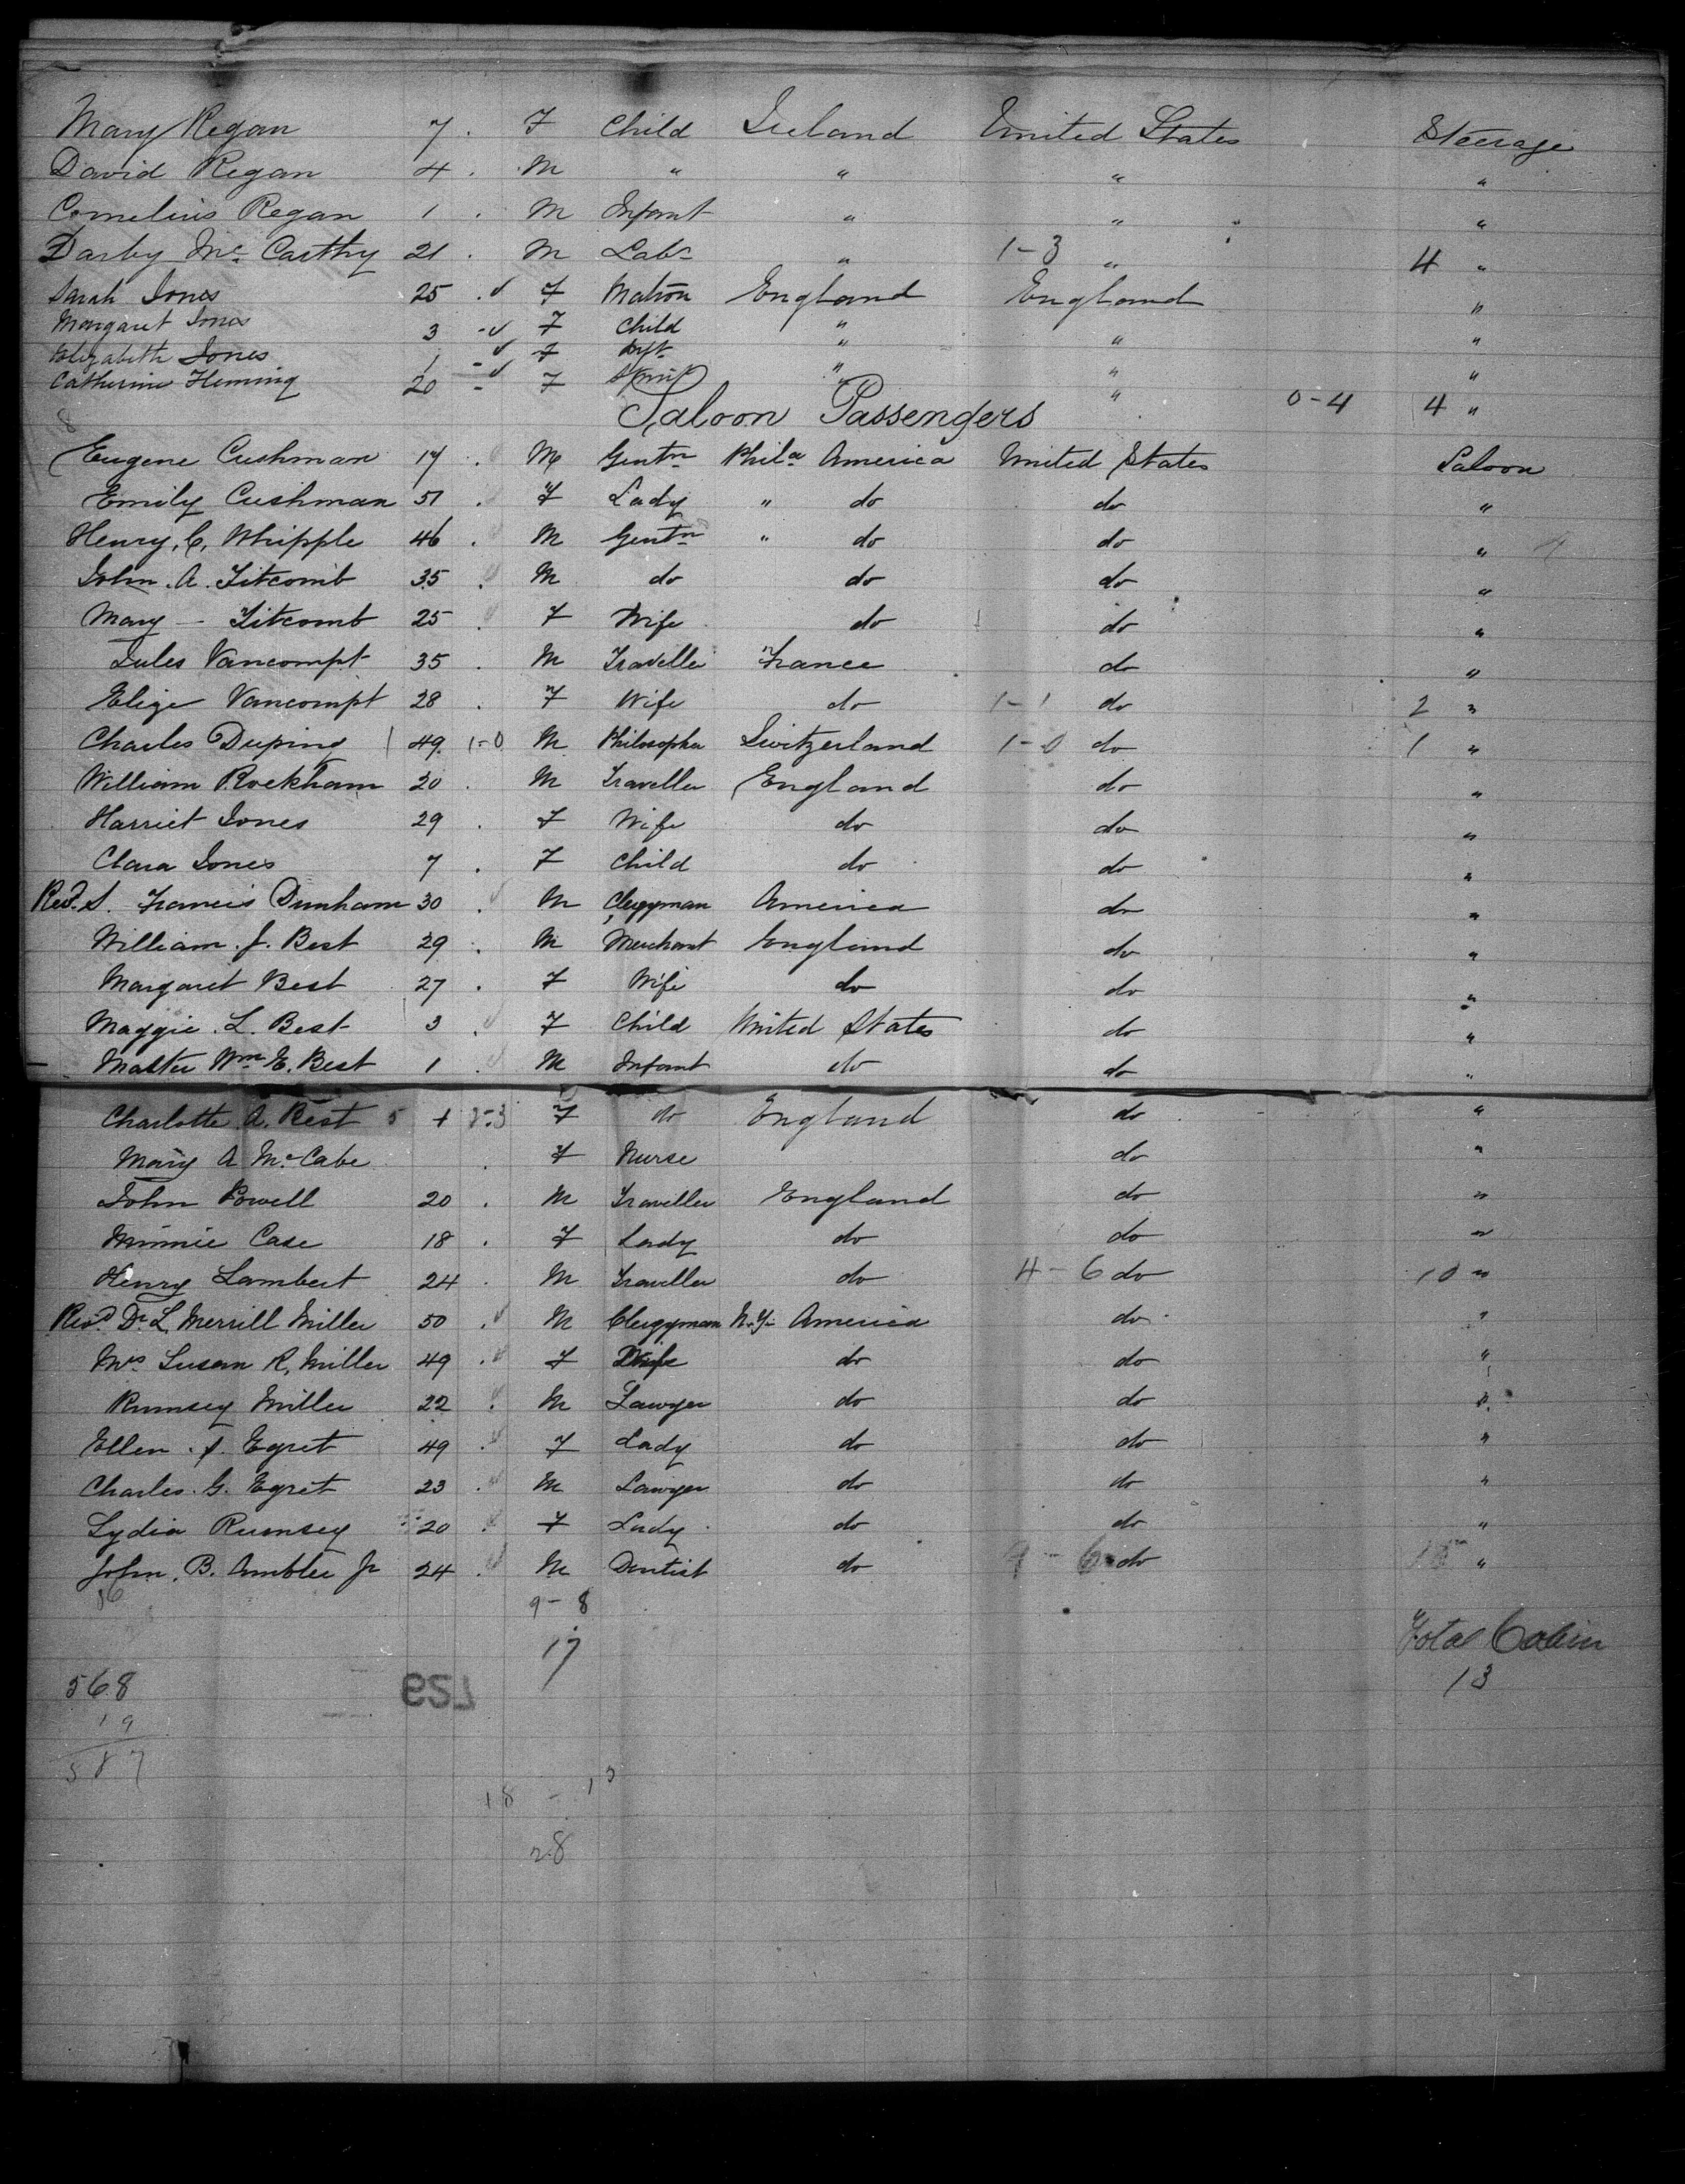 Mary Regan 7 . F Child Ireland United States Steerage
David Regan 4 . M " " " "
Cornelius Regan 1 . M Infant " " "
Darby Mc Carthy 21 . M Labr " 1-3 " 4 "
Sarah Jones 25 . F Matron England England "
Margaret Jones 3 - F Child " " "
Elizabeth Jones 1 - F Inft " " "
Catherine Fleming 20 - F " " 0-4 4 "
8 Saloon Passengers
Eugene Cushman 17 . M Gentn Phila America United States Saloon
Emily Cushman 51 . F Lady " do do "
Henry. C. Whipple 46 . M Gentn " do do "
John. A. Titcomb 35 . M do do do "
Mary - Titcomb 25 . F Wife do do "
Jules Vancompt 35 . M Traveller France do "
Elize Vancompt 28 . F Wife do 1-1 do 2 "
Charles Duping 1 49 1-0 M Philosopher Switzerland 1-0 do 1 "
William Rockham 20 . M Traveller England do "
Harriet Jones 29 . F Wife do do "
Clara Jones 7 . F Child do do "
Revd. S. Francis Dunham 30 . M Clergyman America do "
William. J. Best 29 . M Merchant England do "
Margaret Best 27 . F Wife do do "
Maggie. L. Best 3 . F Child United States do "
Master Wm E. Best 1 . M Infant do do "
Charlotte A. Best 5 1 2-3 F do England do "
Mary A McCabe . F Nurse do "
John Powell 20 . M Traveller England do "
Minnie Case 18 . F Lady do do "
Henry Lambert 24 . M Traveller do 4-6 do 10 "
Revd Dr L. Merrill Miller 50 . M Clergyman N.Y. America do "
Mrs Susan R. Miller 49 . F Wife do do "
Rumsey Miller 22 . M Lawyer do do "
Ellen . Egret 49 . F Lady do do "
Charles. G. Egret 23 . M Lawyer do do "
Lydia Rumsey 20 . F Lady do do "
John. B. Ambler Jr 24 . M Dentist do 9-6 do 15 "
9-8
Total Cabin
17
568 729 13
19
587
18 - 13
28